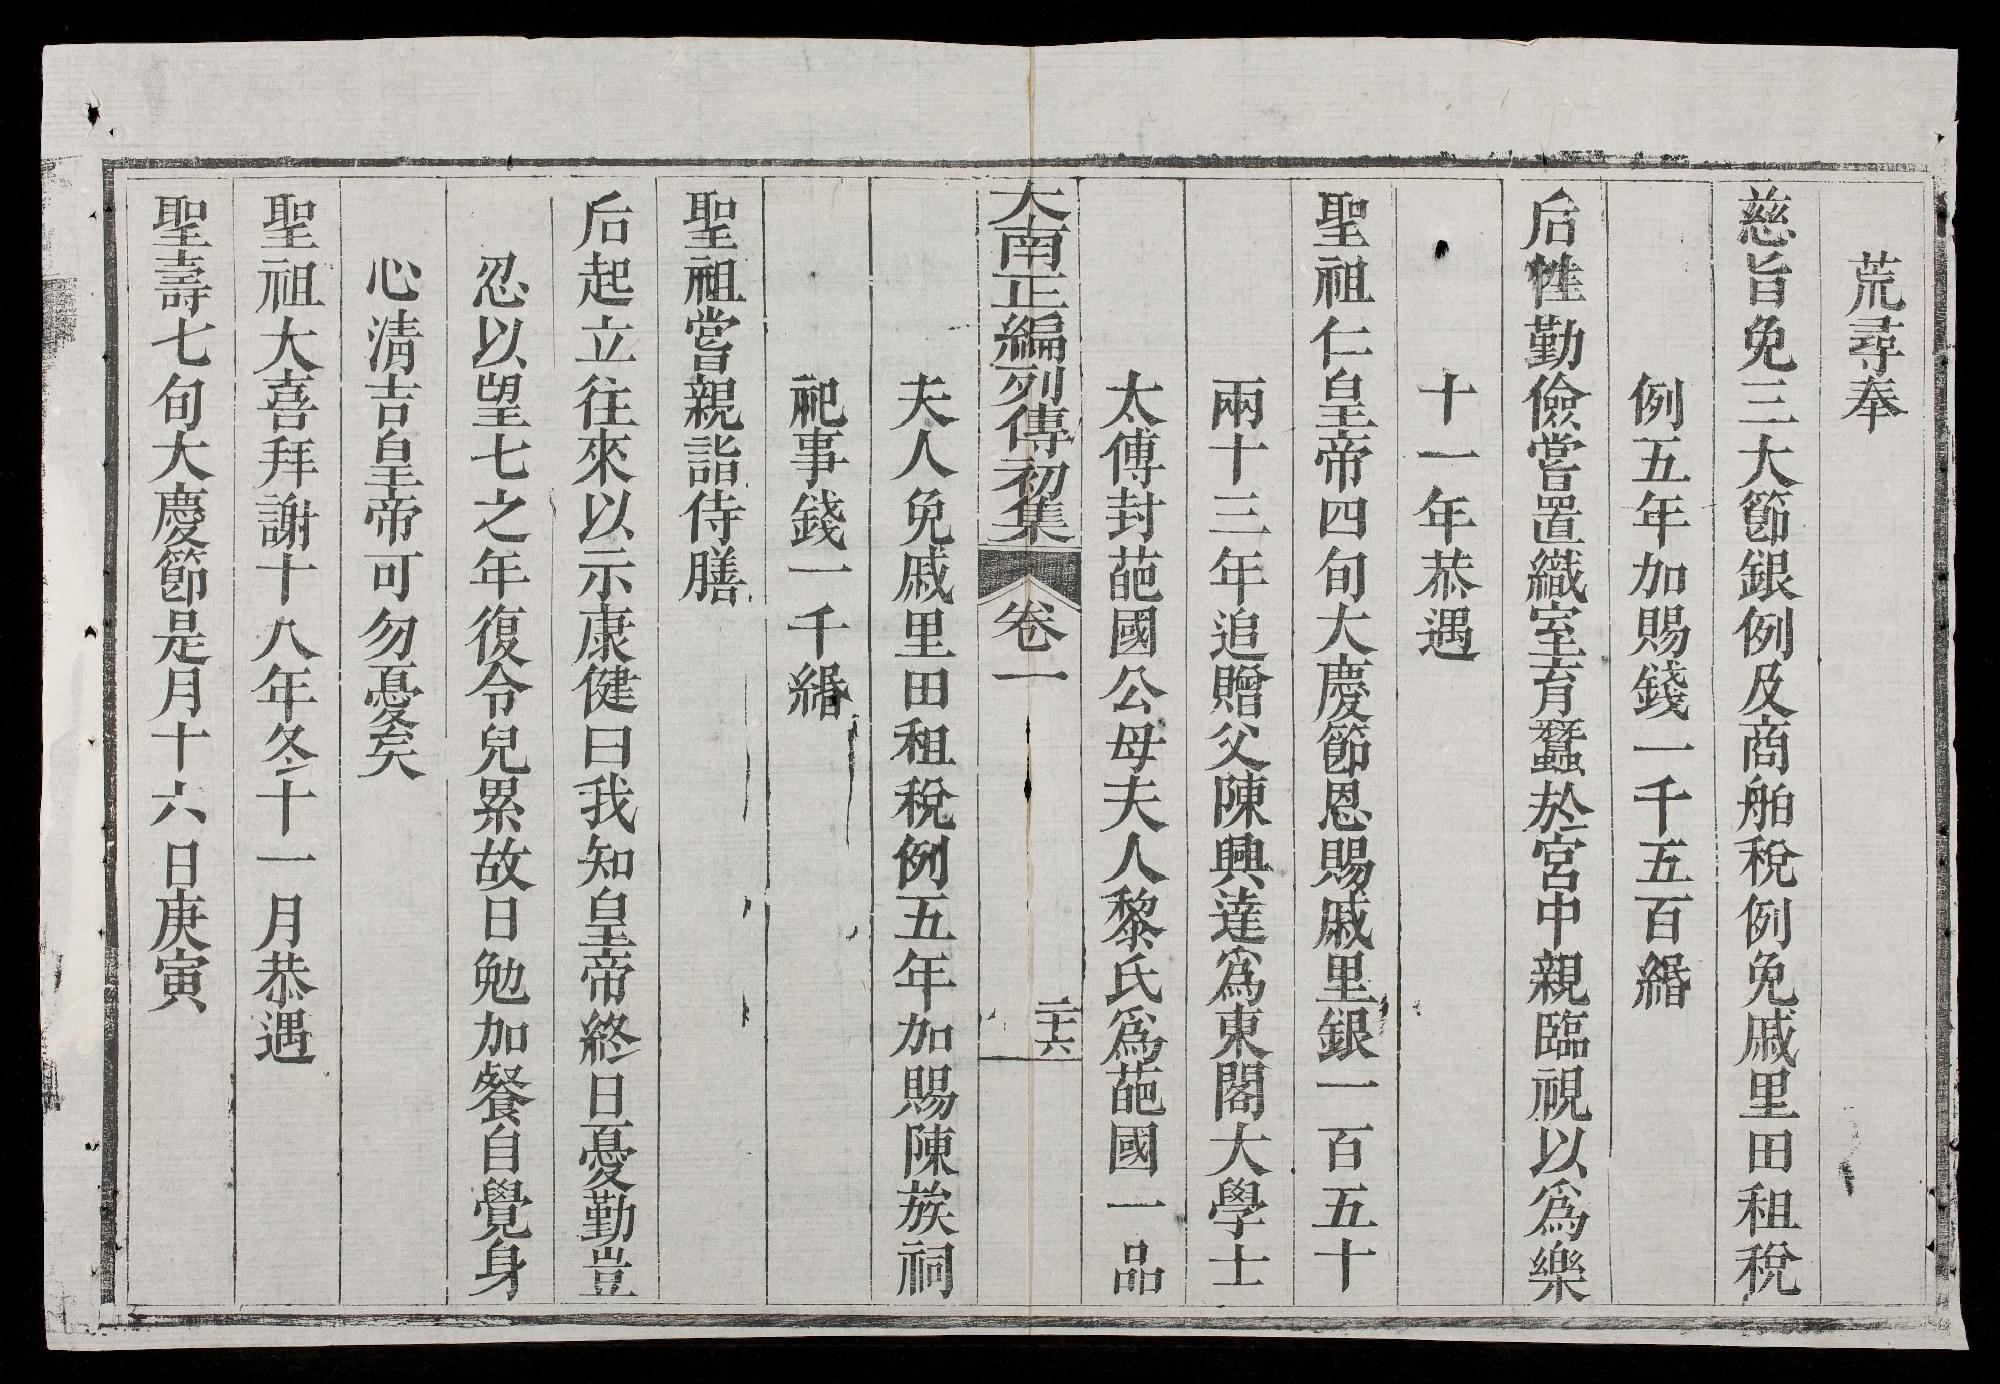 荒尋奉
慈旨免三大節銀例及商舶稅例免戚里田租稅
例五年加賜錢一千五百緡
后性勤儉嘗置織室育蠶於宮中親臨視以為樂
十一年恭遇
聖祖仁皇帝四旬大慶節恩賜戚里銀一百五十
兩十三年追贈父陳興達為東閣大學士
太傅封葩國公母夫人黎氏為葩國一品
大南正編列傳初集 卷一 二十六
夫人免戚里田租稅例五年加賜陳族祠
祀事錢一千緡
聖祖嘗親詣侍膳
后起立往來以示康健曰我知皇帝終日憂勤豈
忍以望七之年復令兒累故日勉加餐自覺身
心清吉皇帝可勿憂矣
聖祖大喜拜謝十八年冬十一月恭遇
聖壽七旬大慶節是月十六日庚寅